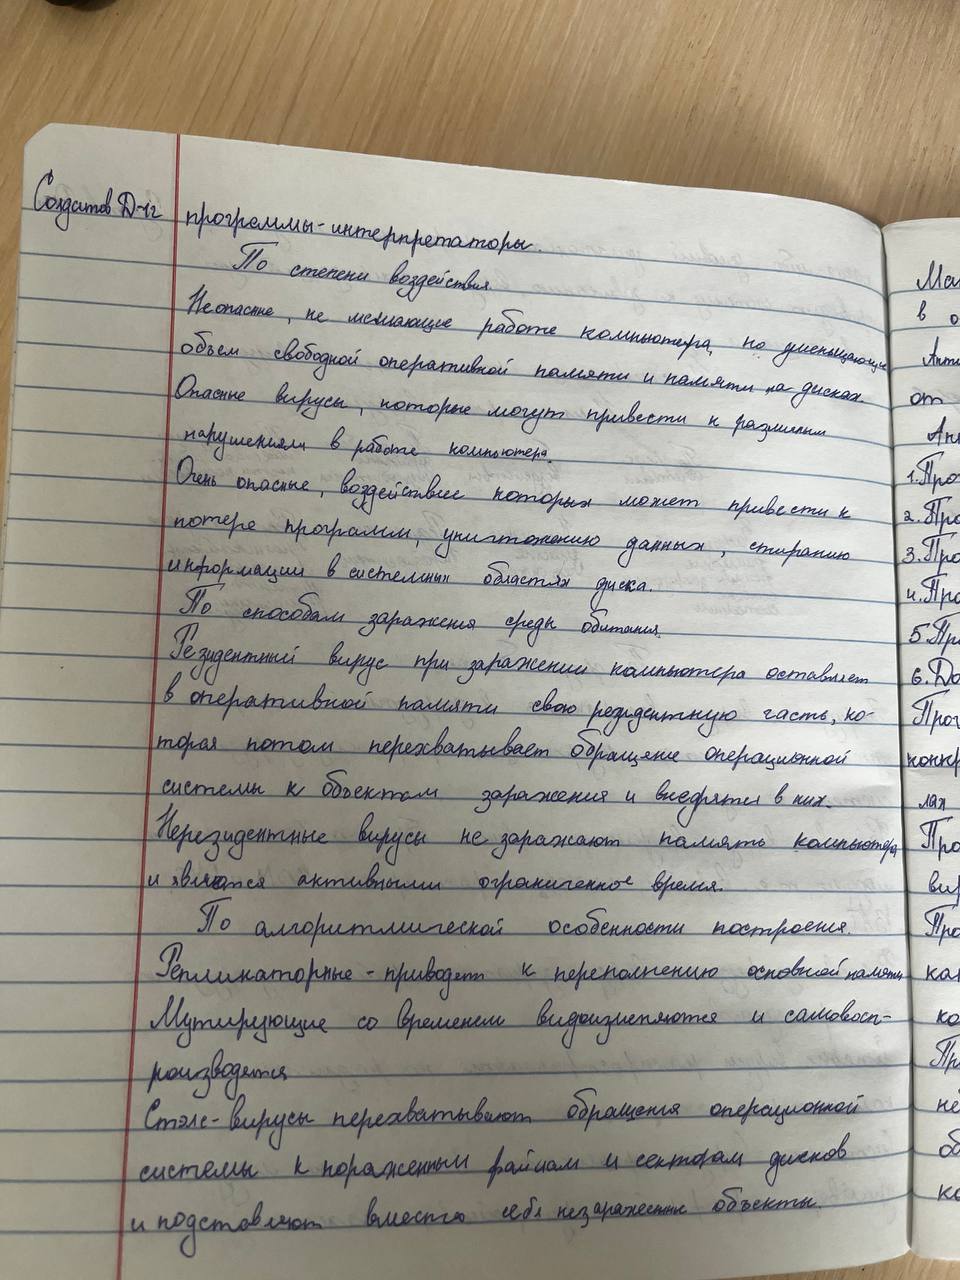 Солдатов Д-12
программы-интерпретаторы.
По степени воздействия.
Неопасные, не мешающие работе компьютера, но уменьшающие
объем свободной оперативной памяти и памяти на дисках
Опасные вирусы, которые могут привести к различным
нарушениям в работе компьютера.
Очень опасные, воздействие которых может привести к
потере программ, уничтожению данных, стиранию
информации в системных областях диска.
По способам заражения среды обитания.
Резидентный вирус при заражении компьютера оставляет
в оперативной памяти свою резидентную часть, ко-
торая потом перехватывает обращение операционной
системы к объектам заражения и внедрятся в них.
Нерезидентные вирусы не заражают память компьютера
и являются активными ограниченное время.
По алгоритмической особенности построения.
Репликаторные - приводят к переполнению основной памяти
Мутирующие со временем видоизменяются и самовосп-
роизводятся
Стэлс-вирусы перехватывают обращения операционной
системы к пораженным файлам и секторам дисков
и подставляют вместо себя незараженные объекты.
в о
от
1.Про
2.Про
3.Про
4.Про
5.Пр
6.До
Прог
конкр
лах
Про
вир
Про
как
ко
Пр
не
об
ко